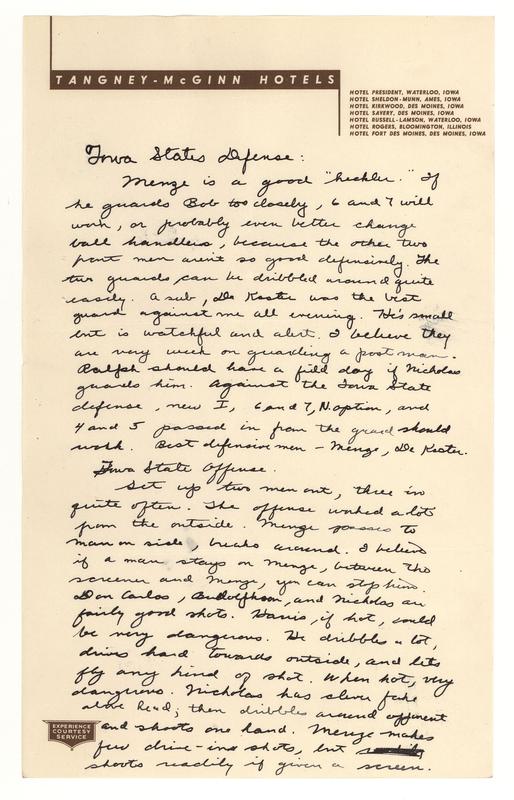 TANGNEY-McGINN HOTELS
HOTEL PRESIDENT, WATERLOO, IOWA
HOTEL SHELDON-MUNN, AMES, IOWA
HOTEL KIRKWOOD, DES MOINES, IOWA
HOTEL SAVERY, DES MOINES, IOWA
HOTEL RUSSELL-LAMSON, WATERLOO, IOWA
HOTEL ROGERS, BLOOMINGTON, ILLINOIS
HOTEL FORT DES MOINES, DES MOINES, IOWA
Iowa States Defense:
Menze is a good "heckler." If
he guards Bob too closely, 6 and 7 will
work, or probably even better change
ball handlers, because the other two
front men aren't so good defensively. The
two guards can be dribbled around quite
easily. A sub, De Koster was the best
guard against me all evening. He's small
but is watchful and alert. I believe they
are very weak on guarding a post man.
Ralph should have a field day if Nicholas
guards him. Against the Iowa State
defense, new I, 6 and 7, N. option, and
4 and 5 passed in from the guard should
work. Best defensive men - Menze, De Koster.
Iowa State Offense.
Set up two men out, three in
quite often. The offense worked a lot
from the outside. Menze passes to
man on side, breaks around. I believe
if a man stays on Menze, between the
screener and Menze, you can stop him.
Don Carlos, Budolfson, and Nicholas are
fairly good shots. Harris, if hot, could
be very dangerous. He dribbles a lot,
drives hard towards outside, and lets
fly any kind of shot. When hot, very
dangerous. Nicholas has clever fake
above head; then dribbles around opponent
and shoots one hand. Menze makes
few drive-ins shots, but
shoots readily if given a screen.
EXPERIENCE
COURTESY
SERVICE